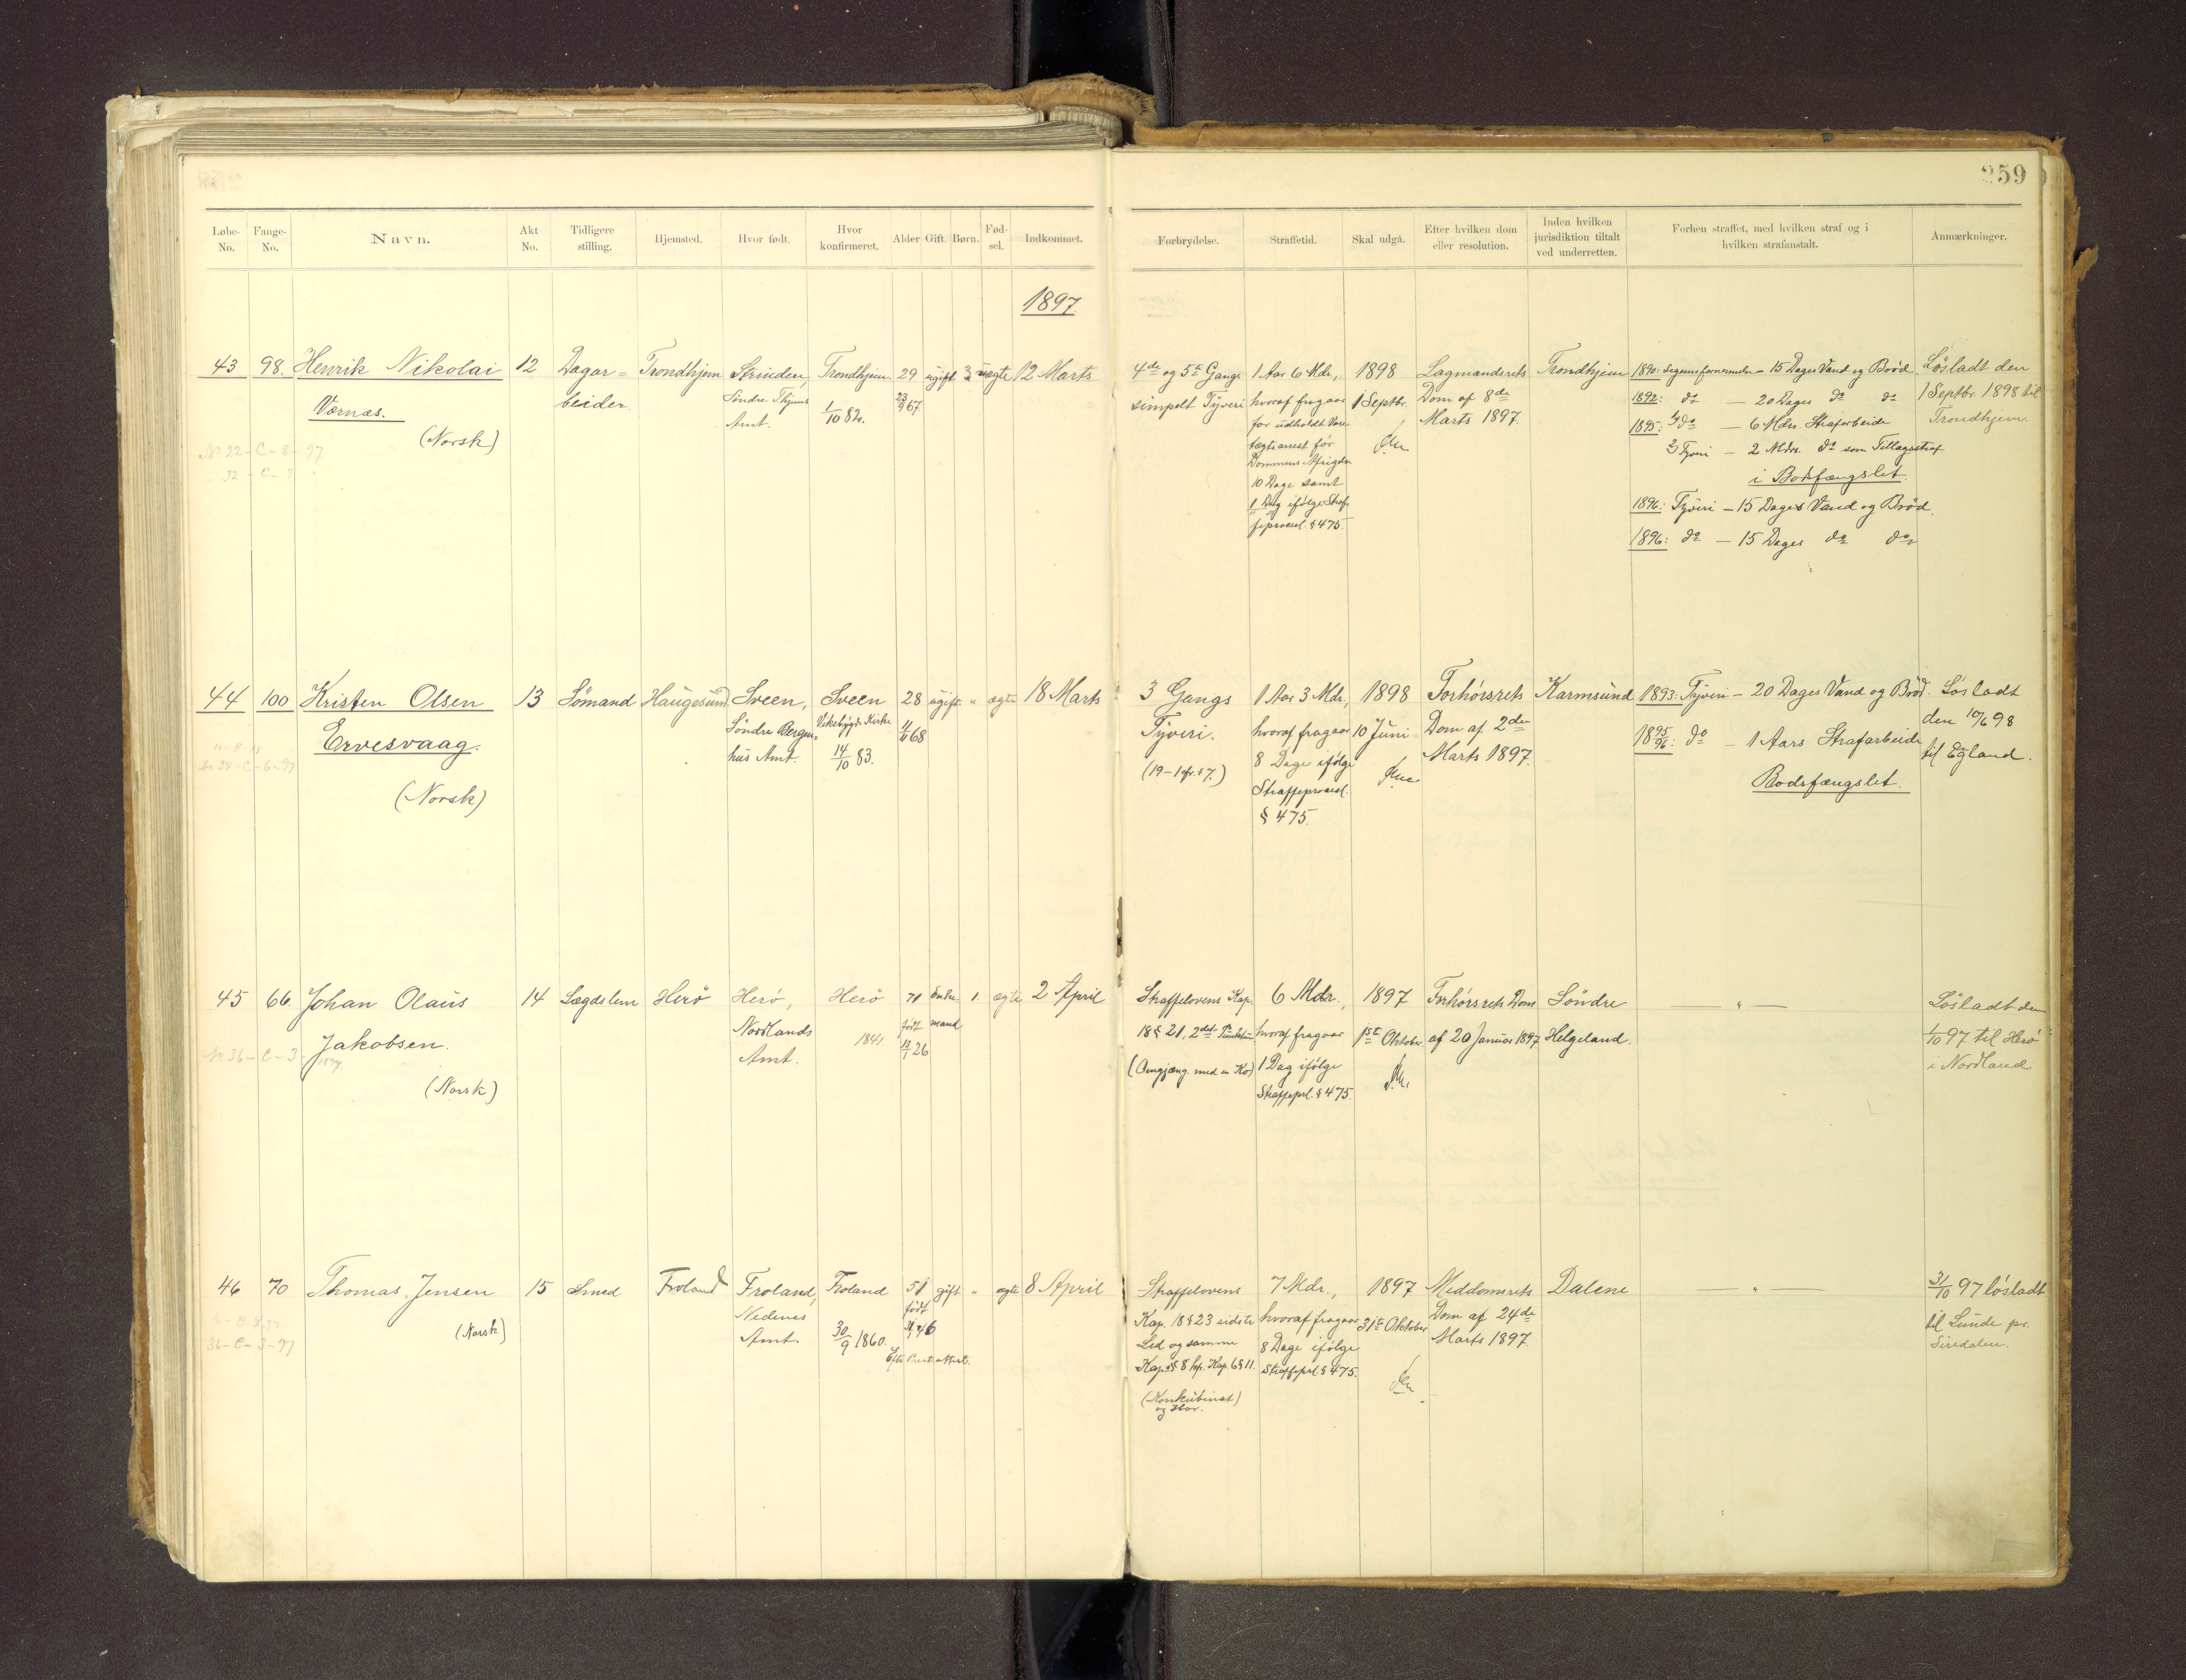 259
Løbe-No. Fange-No. Navn. Akt No. Tidligere stilling. Hjemsted. Hvor født. Hvor konfirmeret. Alder Gift. Børn. Fød-sel. Indkommet.
Forbrydelse. Straffetid. Skal udgå. Efter hvilken dom eller resolution. Inden hvilken jurisdiktion tiltalt ved underretten. Forhen straffet, med hvilken straf og i hvilken strafanstalt. Anmærkninger.
1897
43 98. Henrik Nikolai 12 Dagar= Trondhjem Strinden, Trondhjem. 29 ugift 3 uægte 12 Marts
Værnæs. beider. Søndre Thjems 23/9 67.
Amt. 1/10 82.
(Norsk)
No 22-C-8-97
32-C-3
4de og 5te Gangs 1 Aar 6 Mdr., 1898 Lagmandsrets Trondhjem
simpelt Tyveri hvoraf fragaar 1 Septbr. Dom af 8de
for udholdt Vare- Marts 1897.
tægtsarrest før
Dommens Afsigelse
10 Dage samt
1 Dag ifølge Straf-
feprocesl. § 475.
1890: Legemsfornærmelse - 15 Dages Vand og Brød Løsladt den
1892: do - 20 Dages do do 1 Septbr. 1898 til
1895: 1/ do - 6 Mdrs. Strafarbeide Trondhjem.
2/ Tyveri - 2 Mdrs. do som Tillægsstraf
i Bodsfængslet.
1896: Tyveri - 15 Dages Vand og Brød.
1896: do - 15 Dages do do
44 100 Kristen Olsen 13 Sømand Haugesund Sveen, Sveen 28 ugift " ægte 18 Marts
Ervesvaag. Søndre Bergen- Vikebygds Kirke 68
hus Amt. 14/10 83.
(Norsk)
No 34-C-6-97
3 Gangs 1 Aar 3 Mdr., 1898 Forhørsrets Karmsund 1893: Tyveri - 20 Dages Vand og Brød. Løsladt
Tyveri. hvoraf fragaar 10 Juni Dom af 2den den 10/6 98
(19-1 jfr. § 7.) 8 Dage ifølge Marts 1897. 1895/96: do - 1 Aars Strafarbeide til Egland.
Straffeprocesl. Bodsfængslet.
§ 475.
45 66. Johan Olaus 14 Lægdslem Herø Herø, Herø 71 Enke- 1. ægte 2 April
Jakobsen. Nordlands 1841. født mand
Amt. 26
(Norsk)
No 36-C-3-1897
Straffelovens Kap. 6 Mdr., 1897 Forhørsrets Dom Søndre " Løsladt den
18 § 21, 2det Punktum hvoraf fragaar 1ste Oktober. af 20 Januar 1897 Helgeland. 1/10 97 til Herø
(Omgjæng. med en Ko) 1 Dag ifølge i Nordland
Straffeprl. § 475.
46 70 Thomas Jensen 15 Smed Froland Froland, Froland 51 gift " ægte 8 April
(Norsk) Nedenes født
Amt. 30/9 1860. 46
Efter Presteattest.
36-C-3-97
Straffelovens 7 Mdr., 1897 Meddomsrets Dalene " 31/10 97 løsladt
Kap. 18 § 23 sidste hvoraf fragaar 31te Oktober Dom af 24de til Lunde pr.
Led og samme 8 Dage ifølge Marts 1897. Siredalen.
Kap. § 8 kfr. Kap. 6 § 11. Straffeprl. § 475.
(Konkubinat)
og Hor.